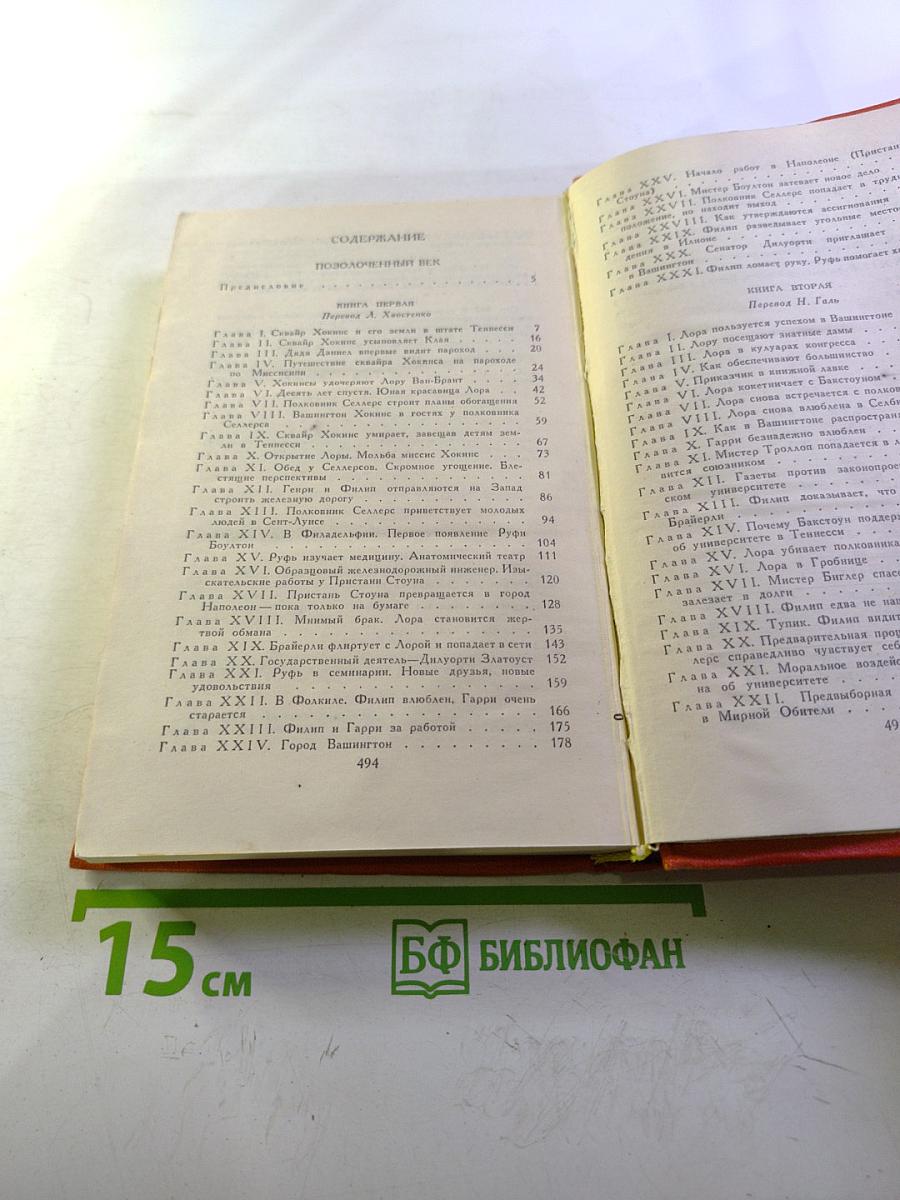 СОДЕРЖАНИЕ
ПОЗОЛОЧЕННЫЙ ВЕК
Предисловие . . . . . . . . . . . . . . . . 5
КНИГА ПЕРВАЯ
Перевод Л. Хвостенко
Глава I. Сквайр Хокинс и его земли в штате Теннесси 7
Глава II. Сквайр Хокинс усыновляет Клая . . . . . 16
Глава III. Дядя Даниел впервые видит пароход . . . 20
Глава IV. Путешествие сквайра Хокинса на пароходе
по Миссисипи . . . . . . . . . . . . . . 24
Глава V. Хокинсы удочеряют Лору Ван-Брант . . . . 34
Глава VI. Десять лет спустя. Юная красавица Лора . . 42
Глава VII. Полковник Селлерс строит планы обогащения 52
Глава VIII. Вашингтон Хокинс в гостях у полковника
Селлерса . . . . . . . . . . . . . . . 59
Глава IX. Сквайр Хокинс умирает, завещав детям зем-
ли в Теннесси . . . . . . . . . . . . . 67
Глава X. Открытие Лоры. Мольба миссис Хокинс . . . 73
Глава XI. Обед у Селлерсов. Скромное угощение. Бле-
стящие перспективы . . . . . . . . . . . 81
Глава XII. Генри и Филип отправляются на Запад
строить железную дорогу . . . . . . . . . 86
Глава XIII. Полковник Селлерс приветствует молодых
людей в Сент-Луисе . . . . . . . . . . . 94
Глава XIV. В Филадельфии. Первое появление Руфи
Боултон . . . . . . . . . . . . . . . 104
Глава XV. Руфь изучает медицину. Анатомический театр 111
Глава XVI. Образцовый железнодорожный инженер. Изы-
скательские работы у Пристани Стоуна . . . . . . . 120
Глава XVII. Пристань Стоуна превращается в город
Наполеон — пока только на бумаге . . . . . . . . 128
Глава XVIII. Мнимый брак. Лора становится жер-
твой обмана . . . . . . . . . . . . . . 135
Глава XIX. Брайерли флиртует с Лорой и попадает в сети 143
Глава XX. Государственный деятель — Дилуорти Златоуст 152
Глава XXI. Руфь в семинарии. Новые друзья, новые
удовольствия . . . . . . . . . . . . . . 159
Глава XXII. В Фолкиле. Филип влюблен, Гарри очень
старается . . . . . . . . . . . . . . . 166
Глава XXIII. Филип и Гарри за работой . . . . . 175
Глава XXIV. Город Вашингтон . . . . . . . . . 178
494
Глава XXV. Начало работ в Наполеоне (Пристан
Стоуна) . . . . . . . . . . .
Глава XXVI. Мистер Боултон затевает новое дело
Глава XXVII. Полковник Селлерс попадает в трудн
положение, но находит выход . . . . .
Глава XXVIII. Как утверждаются ассигнования
Глава XXIX. Филип разведывает угольные место
дения в Илионе . . . . . . . . .
Глава XXX. Сенатор Дилуорти приглашает
в Вашингтон . . . . . . . . . .
Глава XXXI. Филип ломает руку, Руфь помогает
КНИГА ВТОРАЯ
Перевод Н. Галь
Глава I. Лора пользуется успехом в Вашингтоне
Глава II. Лору посещают знатные дамы . . .
Глава III. Лора в кулуарах конгресса . . .
Глава IV. Как обеспечивают большинство . .
Глава V. Приказчик в книжной лавке . . .
Глава VI. Лора кокетничает с Бакстоуном .
Глава VII. Лора снова встречается с полков
Глава VIII. Лора снова влюблена в Селби
Глава IX. Как в Вашингтоне распростран
Глава X. Гарри безнадежно влюблен . .
Глава XI. Мистер Троллоп попадается в л
вится союзником . . . . . . .
Глава XII. Газеты против законопрое
ском университете . . . . . .
Глава XIII. Филип доказывает, что
Брайерли . . . . . . . . .
Глава XIV. Почему Бакстоун поддерж
об университете в Теннесси . . .
Глава XV. Лора убивает полковника
Глава XVI. Лора в Гробнице . .
Глава XVII. Мистер Биглер спас
залезает в долги . . . . .
Глава XVIII. Филип едва не на
Глава XIX. Тупик. Филип видит
Глава XX. Предварительная проц
лерс справедливо чувствует себ
Глава XXI. Моральное воздейс
на об университете . . . .
Глава XXII. Предвыборная
в Мирной Обители . . . .
49
15 см
БФ БИБЛИОФАН